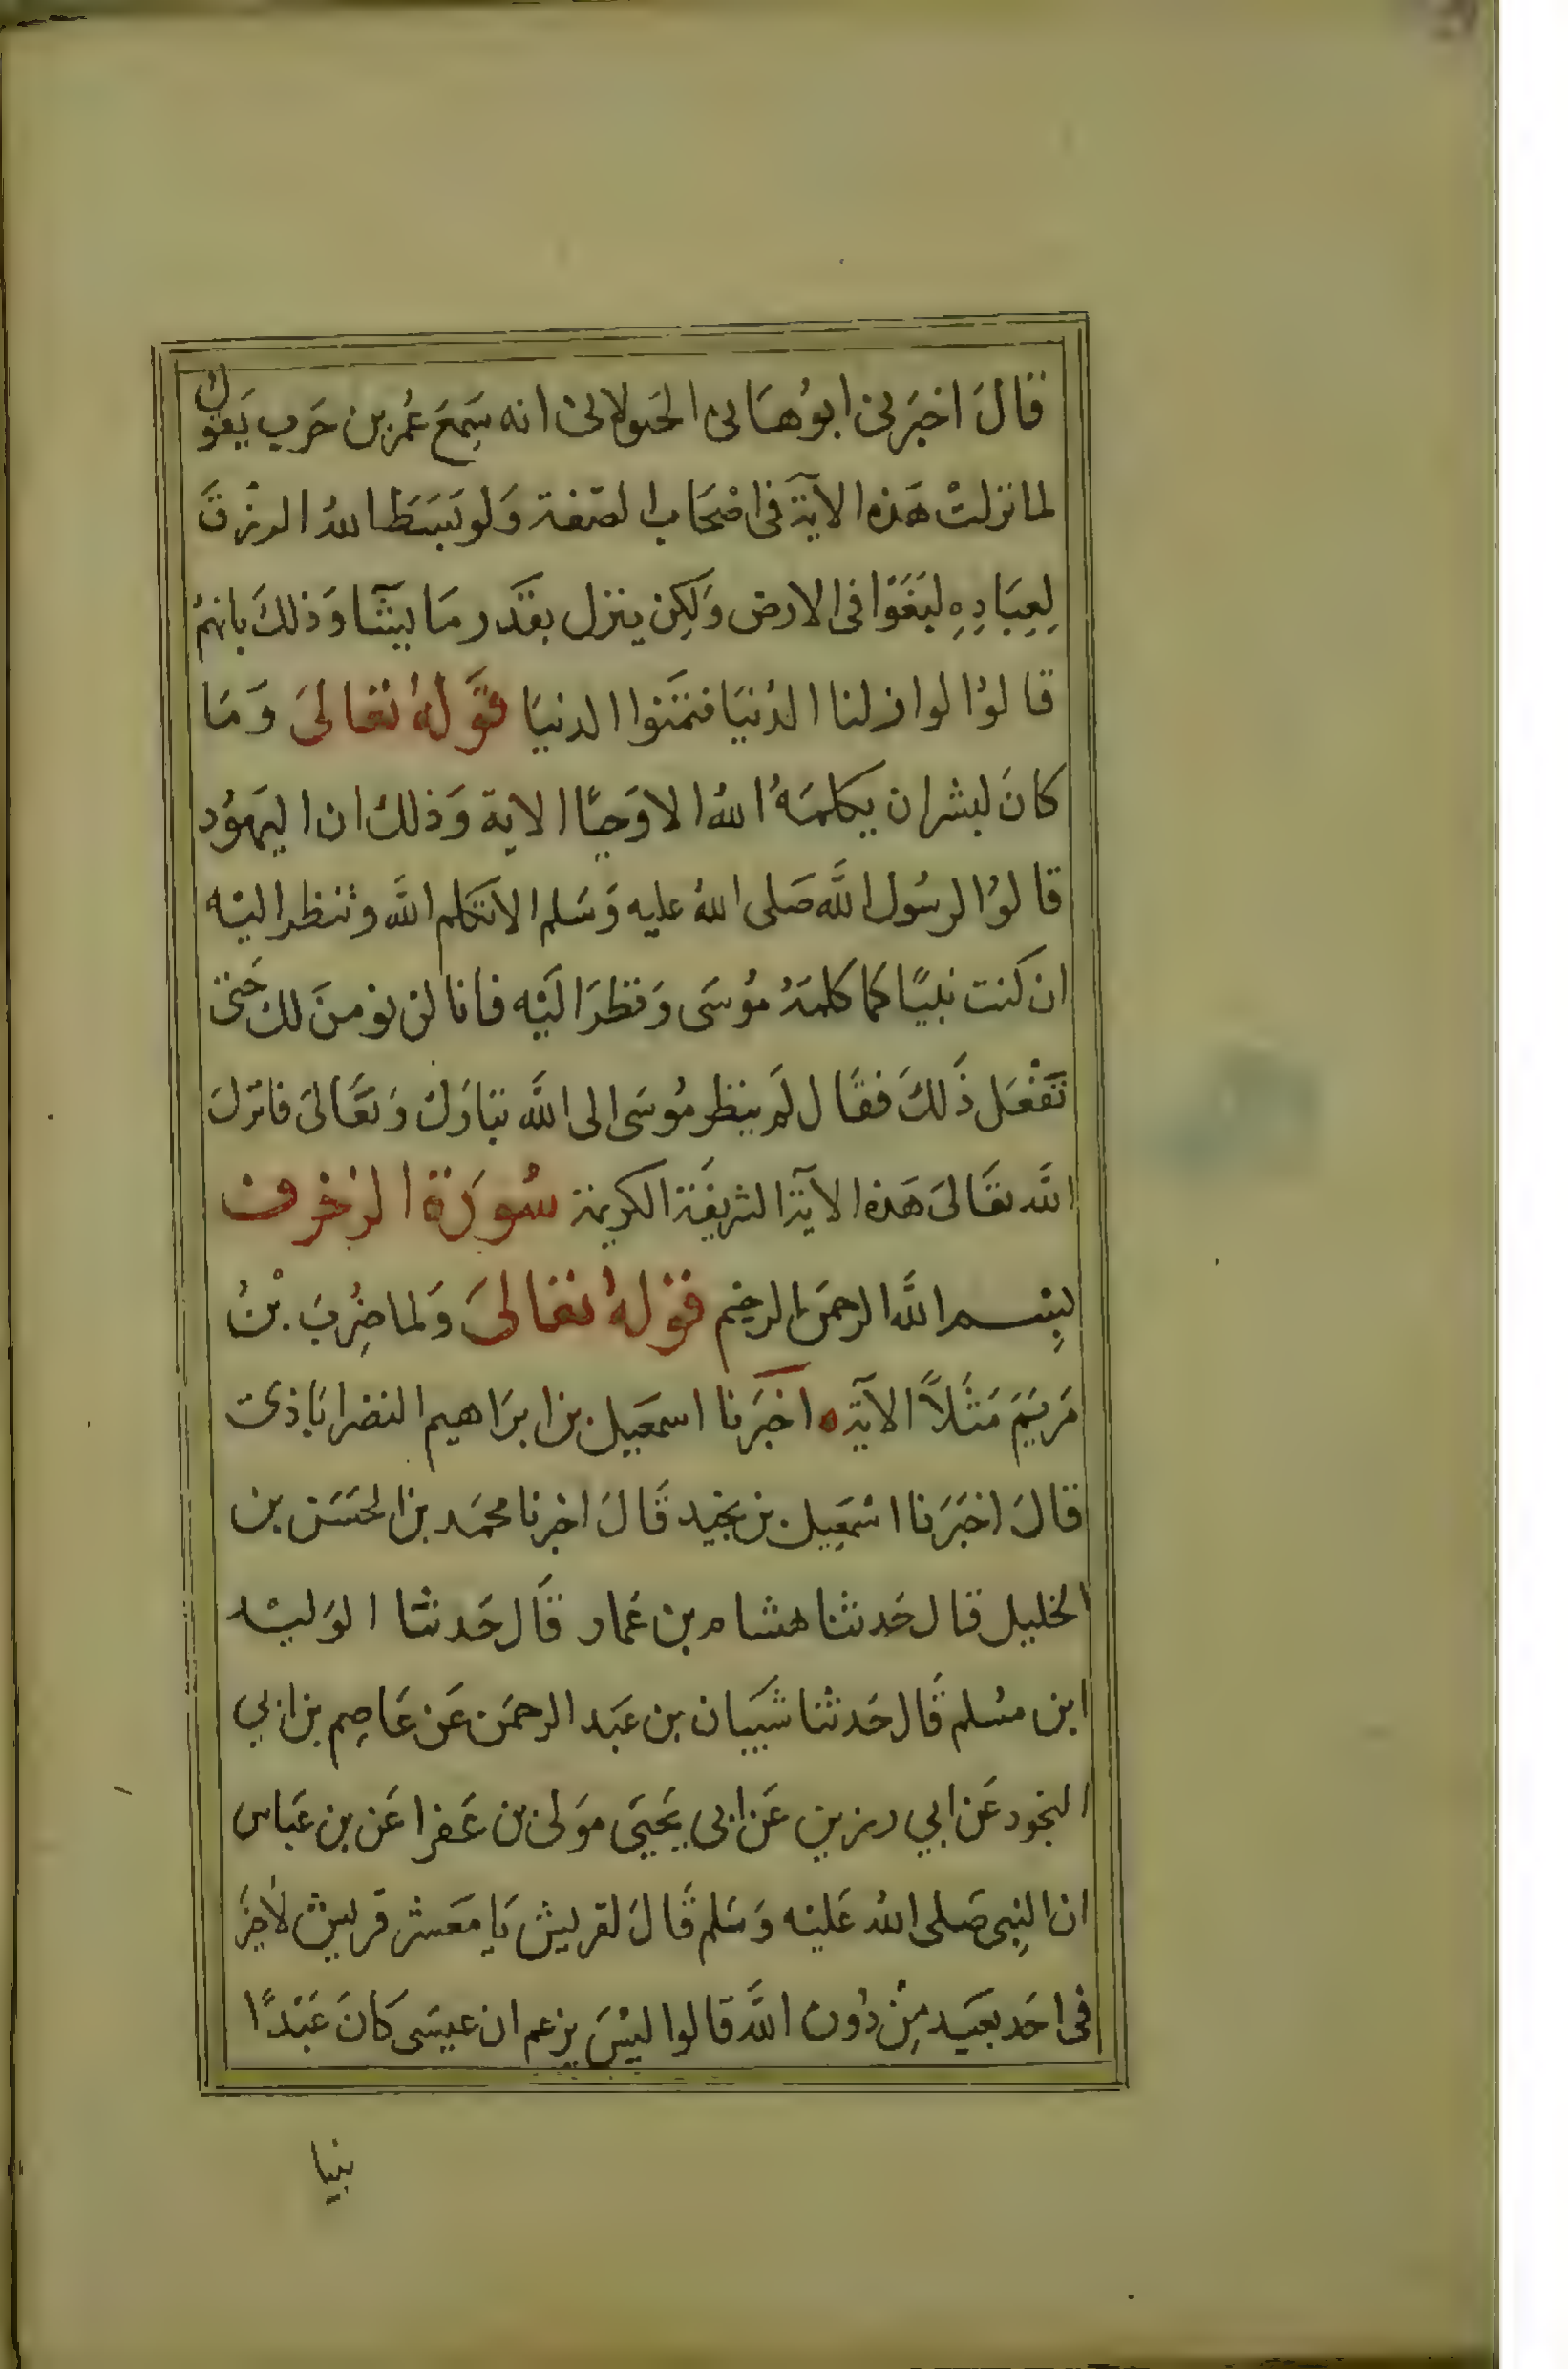 قَالَ اخبَرَنى ابوُهَانى الخولانى انه سَمِعَ عُمَر بن حَرب يَقول
لما نزلتْ هَذه الآية فى اصْحَاب الصّفة وَلو بَسَطَ اللهُ الرزقَ
لِعِبَادِهِ لبَغَوْا فى الارض وَلكِن ينزل بقَدَر مَا يشآا وَذلكَ بانهمُ
قالوُا لو ان لنا الدُنيَا فتمَنوا الدنيَا قَوَلهُ تعَالىَ وَمَا
كانَ لبشر ان يكلمَهُ اللهُ الا وَحيًا الاية وَذلك ان اليَهوُد
قالوُا لرسُول اللَّه صَلى اللهُ عليه وَسَلم الا تكلم اللَّه وتنظر اليْه
ان كنت نبيًا كما كلمَهُ مُوسَى وَنظرَ اليْه فانا لن نومنَ لك حَتى
تَفْعَل ذَلكَ فقَال لَم ينظر مُوسَى الى اللَّه تبَارَكَ وَتعَالىَ فانزلَ
اللَّه تعَالىَ هَذه الآية الشريفَة الكريمَة سُورَة الزخرف
بِسْم اللَّه الرحمَن الرحيم قوْلهُ تعَالىَ وَلما ضُرِبَ بْنُ
مَريَمَ مَثَلاً الآية ه اَخبَرَنا اسمعَيل بن ابرَاهيم النصرابَاذى
قَالَ اخبَرَنا اسْمَعِيل بن نجيد قَالَ اخبرنا محمَد بن الحَسَن بن
الخليل قال حَدثنا هشام بن عَمار قَال حَدثنا الوَليْد
ابن مسُلم قَال حَدثنا شَيبَان بن عَبَد الرحمَن عَن عَاصِم بن ابي
النجود عَن ابي رزين عَن ابى يَحيَى موَلى بن عَفرا عَن بن عَباس
ان النِبى صَلى اللهُ عَليْه وَسَلم قَالَ لقريش يَا مَعَشر قريش لاَ خَيرَ
فى احَد يعبَد مِنْ دُون اللَّه قالوا ليْسَ يزعم ان عيسَى كَانَ عَبْدًا
نبيا